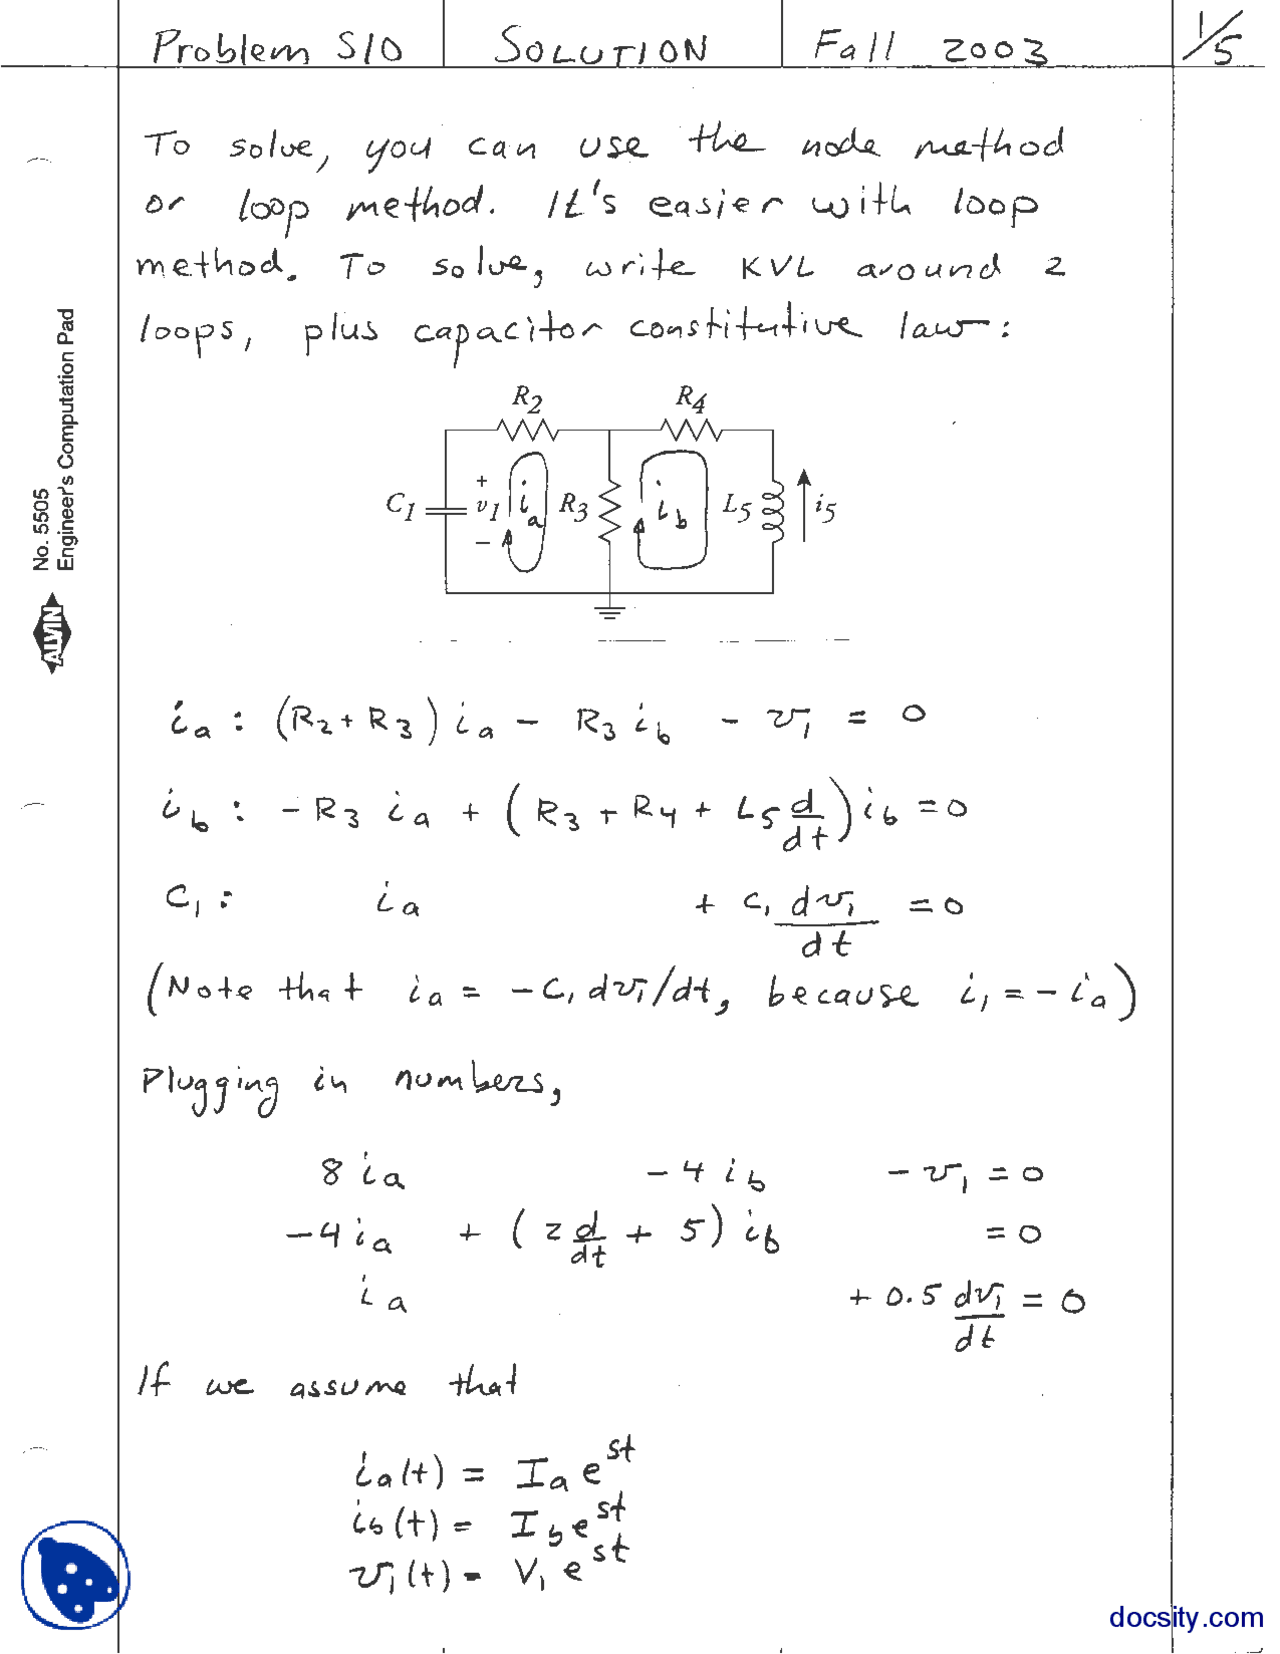 Problem S10 SOLUTION Fall 2003 1/5
To solve, you can use the node method
or loop method. It's easier with loop
method. To solve, write KVL around 2
loops, plus capacitor constitutive law:
R2 R4
C1 + v1 − ia R3 ib L5 i5
ia : (R2 + R3) ia − R3 ib − v1 = 0
ib : −R3 ia + (R3 + R4 + L5 d/dt) ib = 0
C1 : ia + C1 dv1/dt = 0
(Note that ia = −C1 dv1/dt, because i1 = −ia)
Plugging in numbers,
8 ia − 4 ib − v1 = 0
−4 ia + (2 d/dt + 5) ib = 0
ia + 0.5 dv1/dt = 0
If we assume that
ia(t) = Ia e^st
ib(t) = Ib e^st
v1(t) = V1 e^st
No. 5505
Engineer's Computation Pad
ALVIN
docsity.com